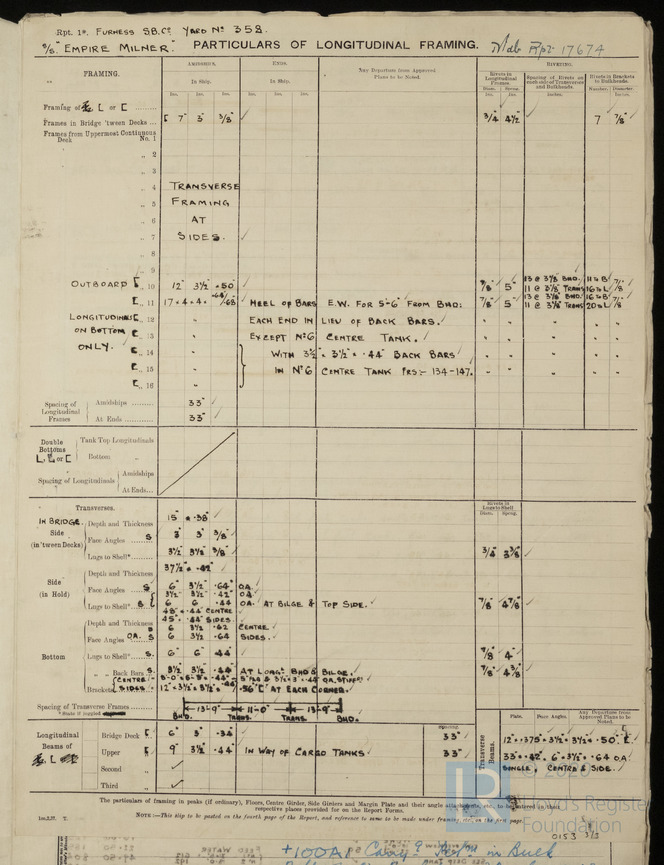 Rpt. 1*. FURNESS S.B. Co YARD No 358.
S/S "EMPIRE MILNER". PARTICULARS OF LONGITUDINAL FRAMING. Mdb Rpt 17674
FRAMING. AMIDSHIPS. ENDS. Any Departure from Approved Plans to be Noted. RIVETING.
In Ship. In Ship. Rivets in Longitudinal Frames. Spacing of Rivets on each side of Transverses and Bulkheads. Rivets in Brackets to Bulkheads.
Ins. Ins. Ins. Ins. Ins. Ins. Diam. Spcng. Number. Diameter
Ins. Ins. Inches. Inches.
Framing of L or [ .........
Frames in Bridge 'tween Decks ... [ 7" 3" 3/8" 3/4 4½ 7 7/8"
Frames from Uppermost Continuous Deck No. 1
" 2
" 3
" 4 TRANSVERSE
" 5 FRAMING
" 6 AT
" 7 SIDES.
" 8
" 9
OUTBOARD [ " 10 12" 3½ .50" 7/8" 5" 13 @ 3⅜ BHD. 11 @ 3⅜" TRANS 11 to B 16 to L 7/8
[ " 11 17 . 4 . 4 . /68 HEEL OF BARS E.W. FOR 5'-6" FROM BHD: 7/8 5 13 @ 3⅜" BHD. 11 @ 3⅜" TRANS 16 to B 20 to L 7/8
LONGITUDINALS [ " 12 " EACH END IN LIEU OF BACK BARS. " " " " "
ON BOTTOM [ " 13 " EXCEPT No 6 CENTRE TANK. " " " " "
ONLY. [ " 14 " WITH 3½" × 3½" × .44" BACK BARS " " " " "
[ " 15 " IN No 6 CENTRE TANK FRS:- 134-147. " " " " "
[ " 16 "
Spacing of Longitudinal Frames Amidships ......... 33"
At Ends ......... 33"
Double Bottoms L, [ or [ Tank Top Longitudinals
Bottom "
Spacing of Longitudinals Amidships
At Ends...
Transverses. Rivets in Lugs to Shell
Diam. Spcng.
IN BRIDGE. Side (in 'tween Decks) Depth and Thickness 15" × .38"
Face Angles ... S 3" 3" 3/8"
Lugs to Shell* ... 3½" 3½" 3/8" 3/4 3⅜"
Side (in Hold) Depth and Thickness 37½" × .42"
Face Angles ... S 6" 3½" .64" OA.
3½" 3½" .42" OA
Lugs to Shell* ... S 6 6 .44 OA. AT BILGE & TOP SIDE. 7/8 4⅞"
Bottom Depth and Thickness 48" × .44" CENTRE
45" × .44" SIDES.
S 6 3½ .62 CENTRE.
Face Angles OA. S 6 3½ .64 SIDES.
Lugs to Shell* ... S. 6" 6" .44" 7/8" 4"
" " Back Bars ... S. 3½ 3½" .44" AT LONGL BHDS & BILGE. 7/8" 4⅜"
Brackets CENTRE
SIDES 12" × 3½" × 3½" × .56"[ AT EACH CORNER.
Spacing of Transverses 13'-9" 11'-0" 13'-9"
*State if joggled BHD. TRANS. TRANS. BHD.
Longitudinal Beams of L Bridge Deck [ 6" 3" .34 Spacing. 33"
Upper " [ 9" 3½" .44" IN WAY OF CARGO TANKS 33"
Second "
Third "
Transverse Beams. Plate. Face Angles. Any Departure from Approved Plans to be Noted.
12" × .375" × 3½" × 3½" × .50" [.
33" × .42" 6" × 3½" × .64 OA
SINGLE, CENTRE & SIDE.
The particulars of framing in peaks (if ordinary), Floors, Centre Girder, Side Girders and Margin Plate and their angle attachments, etc. to be entered in their
respective places provided for on the Report Forms.
NOTE:—This slip to be pasted on the fourth page of the Report, and reference to same to be made under framing, etc. on the first page.
© 2020
Lloyd's Register
Foundation
0153 3/3